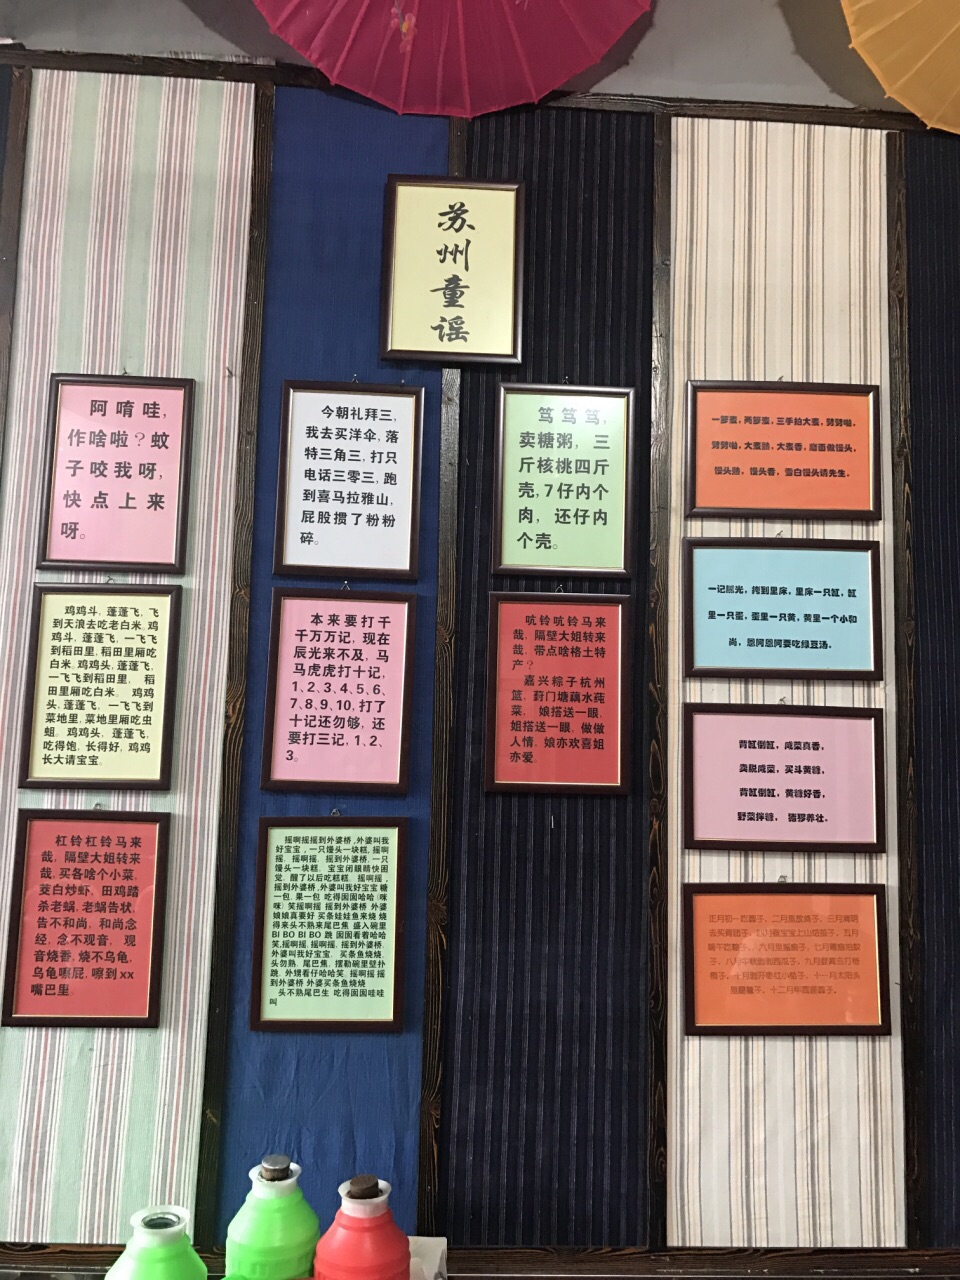 苏州童谣
阿唷哇,
作啥啦?蚊
子咬我呀,
快点上来
呀。
鸡鸡斗, 蓬蓬飞, 飞
到天浪去吃老白米, 鸡
鸡斗, 蓬蓬飞, 一飞飞
到稻田里, 稻田里厢吃
白米, 鸡鸡头, 蓬蓬飞,
一飞飞到稻田里, 稻
田里厢吃白米, 鸡鸡
头, 蓬蓬飞, 一飞飞到
菜地里, 菜地里厢吃虫
蛆, 鸡鸡头, 蓬蓬飞,
吃得饱, 长得好, 鸡鸡
长大请宝宝。
杠铃杠铃马来
哉, 隔壁大姐转来
哉, 买各啥个小菜,
茭白炒虾, 田鸡踏
杀老蝈, 老蝈告状,
告不和尚, 和尚念
经, 念不观音, 观
音烧香, 烧不乌龟,
乌龟嘭屁, 嘭到xx
嘴巴里。
今朝礼拜三,
我去买洋伞, 落
特三角三, 打只
电话三零三, 跑
到喜马拉雅山,
屁股掼了粉粉
碎。
本来要打千
千万万记, 现在
辰光来不及, 马
马虎虎打十记,
1、2、3、4、5、6、
7、8、9、10, 打了
十记还勿够, 还
要打三记, 1、2、
3。
摇啊摇摇到外婆桥,外婆叫我
好宝宝, 一只馒头一块糕, 摇啊
摇, 摇啊摇, 摇到外婆桥, 一只
馒头一块糕, 宝宝闭眼睛快困
觉, 醒了以后吃糕糕, 摇啊摇,
摇到外婆桥,外婆叫我好宝宝 糖
一包 果一包 吃得囡囡哈哈(咪
咪) 笑摇啊摇 摇到外婆桥 外婆
娘娘真要好 买条娃娃鱼来烧 烧
得来头不熟来尾巴焦 盛入碗里
BI BO BI BO 跳 囡囡看着哈哈
笑,摇啊摇, 摇啊摇, 摇到外婆桥,
外婆叫我好宝宝, 买条鱼烧烧,
头勿熟, 尾巴焦, 摆勒碗里壁扑
跳, 外甥看仔哈哈笑, 摇啊摇 摇
到外婆桥 外婆买条鱼烧烧
头不熟尾巴生 吃得囡囡哇哇
叫
笃 笃 笃,
卖糖粥, 三
斤核桃四斤
壳,7仔内个
肉, 还仔内
个壳。
吭铃吭铃马来
哉, 隔壁大姐转来
哉, 带点啥格土特
产?
嘉兴粽子杭州
篮, 葑门塘藕水莼
菜, 娘搭送一眼,
姐搭送一眼, 做做
人情, 娘亦欢喜姐
亦爱。
一箩麦, 两箩麦, 三手拍大麦, 劈劈啪,
劈劈啪, 大麦熟, 大麦香, 磨面做馒头,
馒头熟, 馒头香, 雪白馒头请先生。
一记耳光, 拷到里床, 里床一只缸, 缸
里一只蛋, 蛋里一只黄, 黄里一个小和
尚, 恩阿恩阿要吃绿豆汤。
背缸倒缸, 咸菜真香,
卖脱咸菜, 买斗黄糠,
背缸倒缸, 黄糠好香,
野菜拌糠, 猪猡养壮。